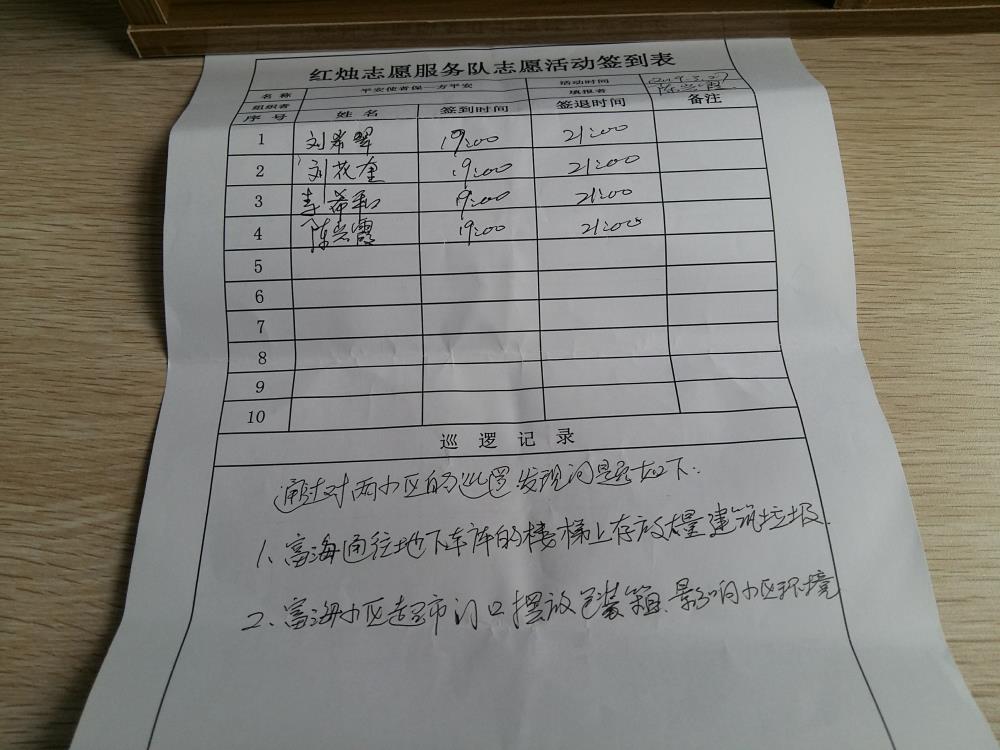 红烛志愿服务队志愿活动签到表
名称 平安使者保一方平安 活动时间 2019.3.27
组织者 填报者 陈兴霞
序号 姓名 签到时间 签退时间 备注
1 刘希翠 19:00 21:00
2 刘花奎 19:00 21:00
3 李希和 19:00 21:00
4 陈兴霞 19:00 21:00
5
6
7
8
9
10
巡逻记录
通过对两小区的巡逻发现问题如下:
1、富海通往地下车库的楼梯上存放大量建筑垃圾.
2、富海小区超市门口摆放包装箱、影响小区环境